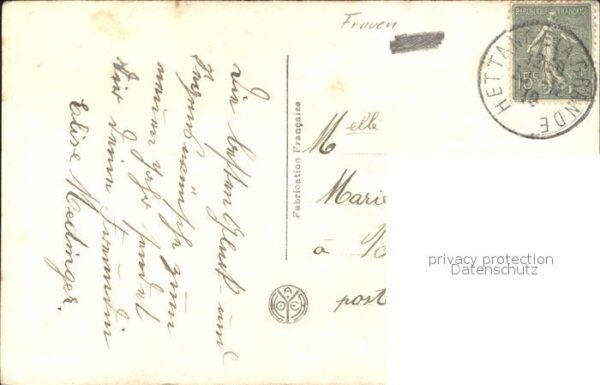 Frauen
RÉPUBLIQUE FRANÇAISE
15c
HETTANGE GRANDE
19
Die besten Glück- und
Segenswünsche zum
neuen Jahr sendet
dir deine Freundin
Elise Medinger.
Fabrication Française
Melle
Marie
à
post
privacy protection
Datenschutz